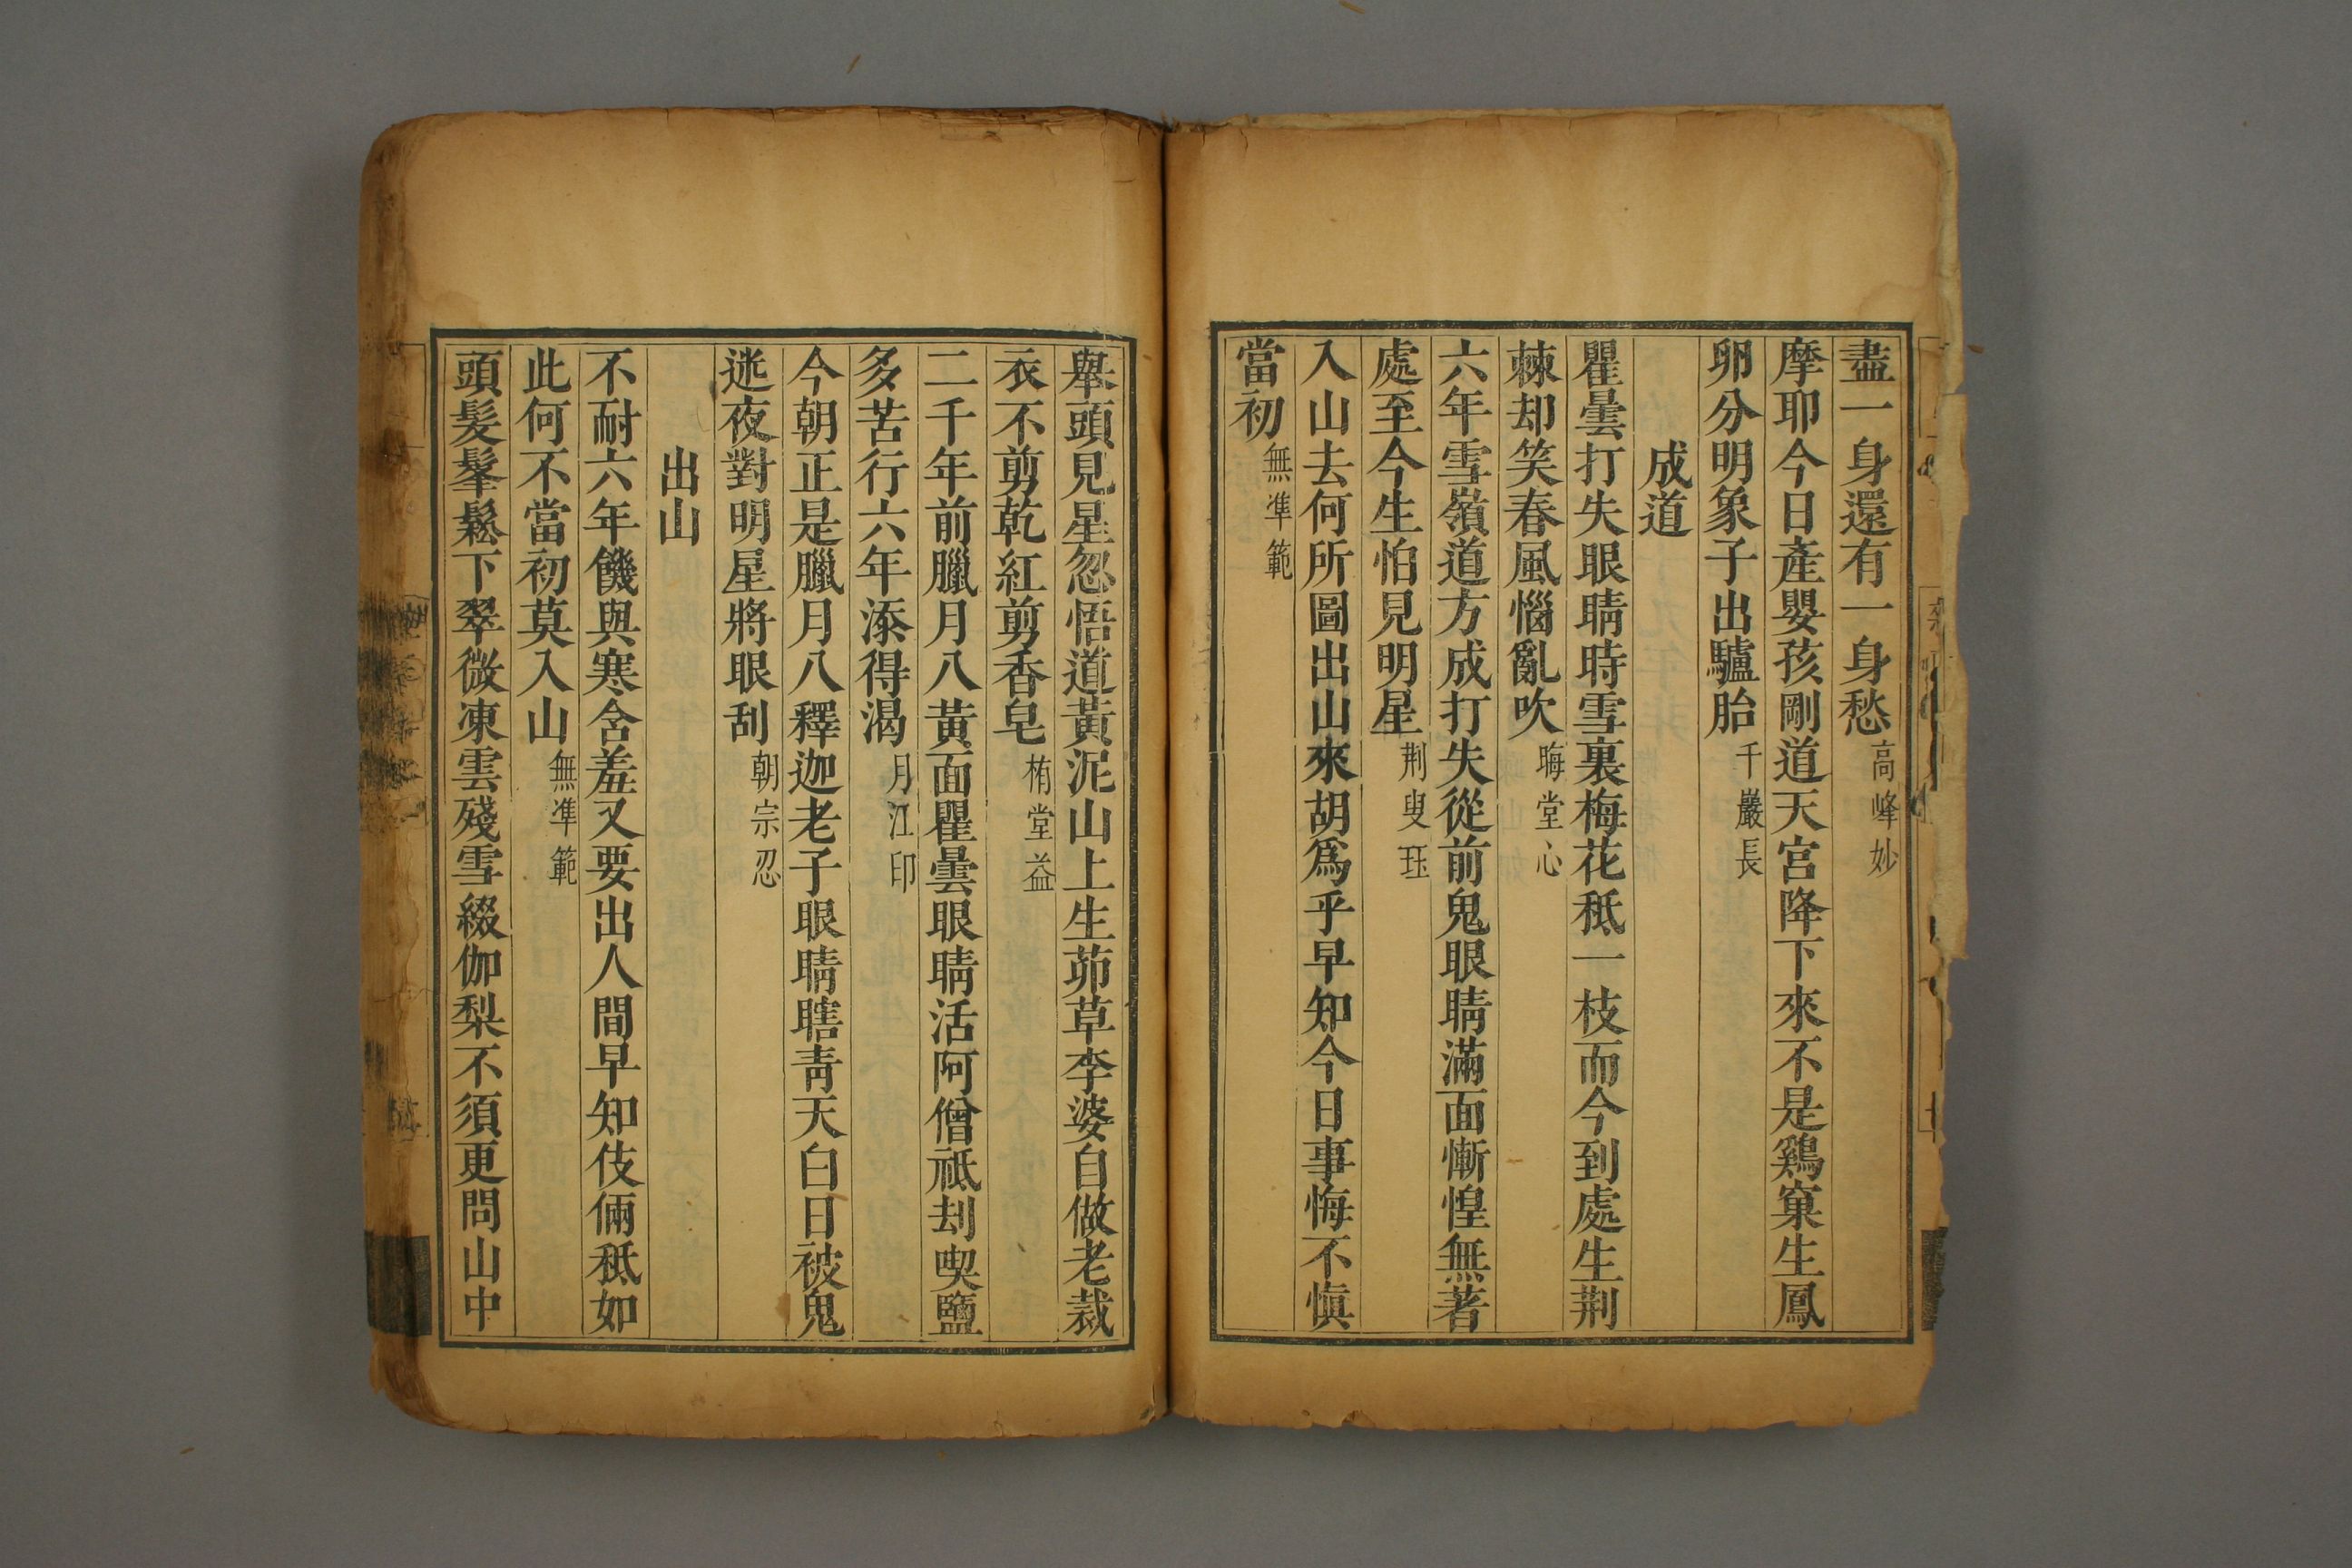 盡一身還有一身愁高峰妙
摩耶今日產嬰孩剛道天宮降下來不是鷄窠生鳳
卵分明象子出驢胎千巖長
成道
瞿曇打失眼睛時雪裏梅花秪一枝而今到處生荆
棘却笑春風惱亂吹晦堂心
六年雪嶺道方成打失從前鬼眼睛滿面慚惶無著
處至今生怕見明星荆叟珏
入山去何所圖出山來胡爲乎早知今日事悔不愼
當初無準範
舉頭見星忽悟道黃泥山上生茆草李婆自做老裁
衣不剪乾紅剪香皂栯堂益
二千年前臘月八黃面瞿曇眼睛活阿僧祇刦喫鹽
多苦行六年添得渴月江印
今朝正是臘月八釋迦老子眼睛瞎靑天白日被鬼
迷夜對明星將眼刮朝宗忍
出山
不耐六年饑與寒含羞又要出人間早知伎倆秪如
此何不當初莫入山無準範
頭髮鬔鬆下翠微凍雲殘雪綴伽梨不須更問山中